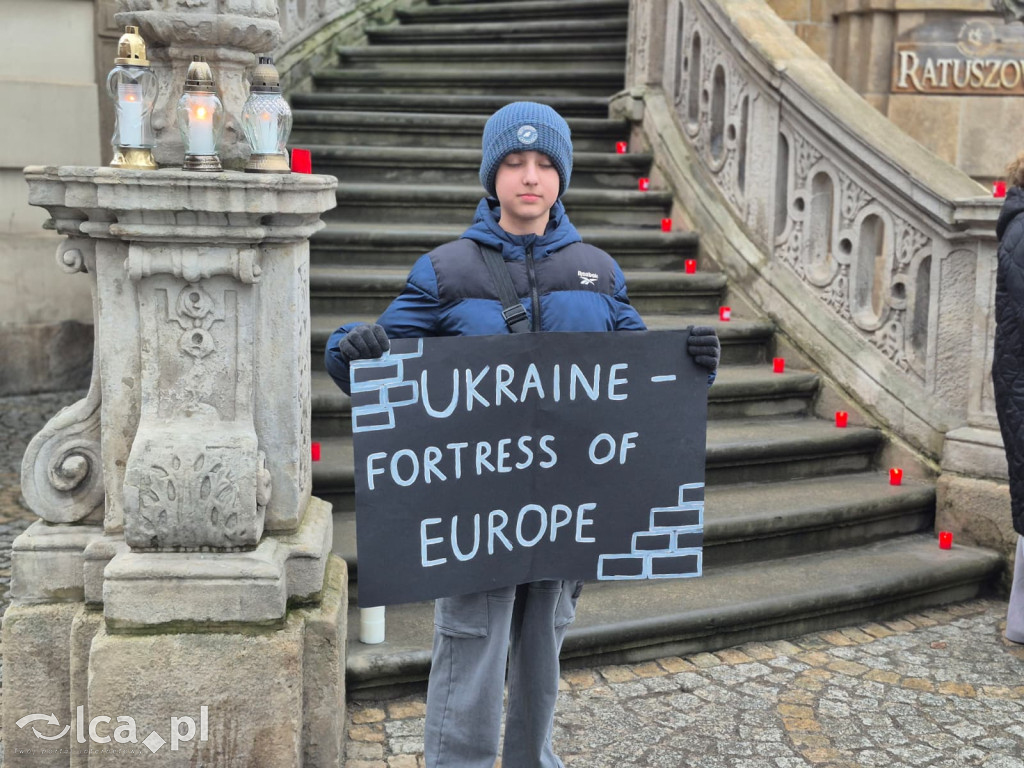 RATUSZOW
Reebok
UKRAINE –
FORTRESS OF
EUROPE
lca.pl